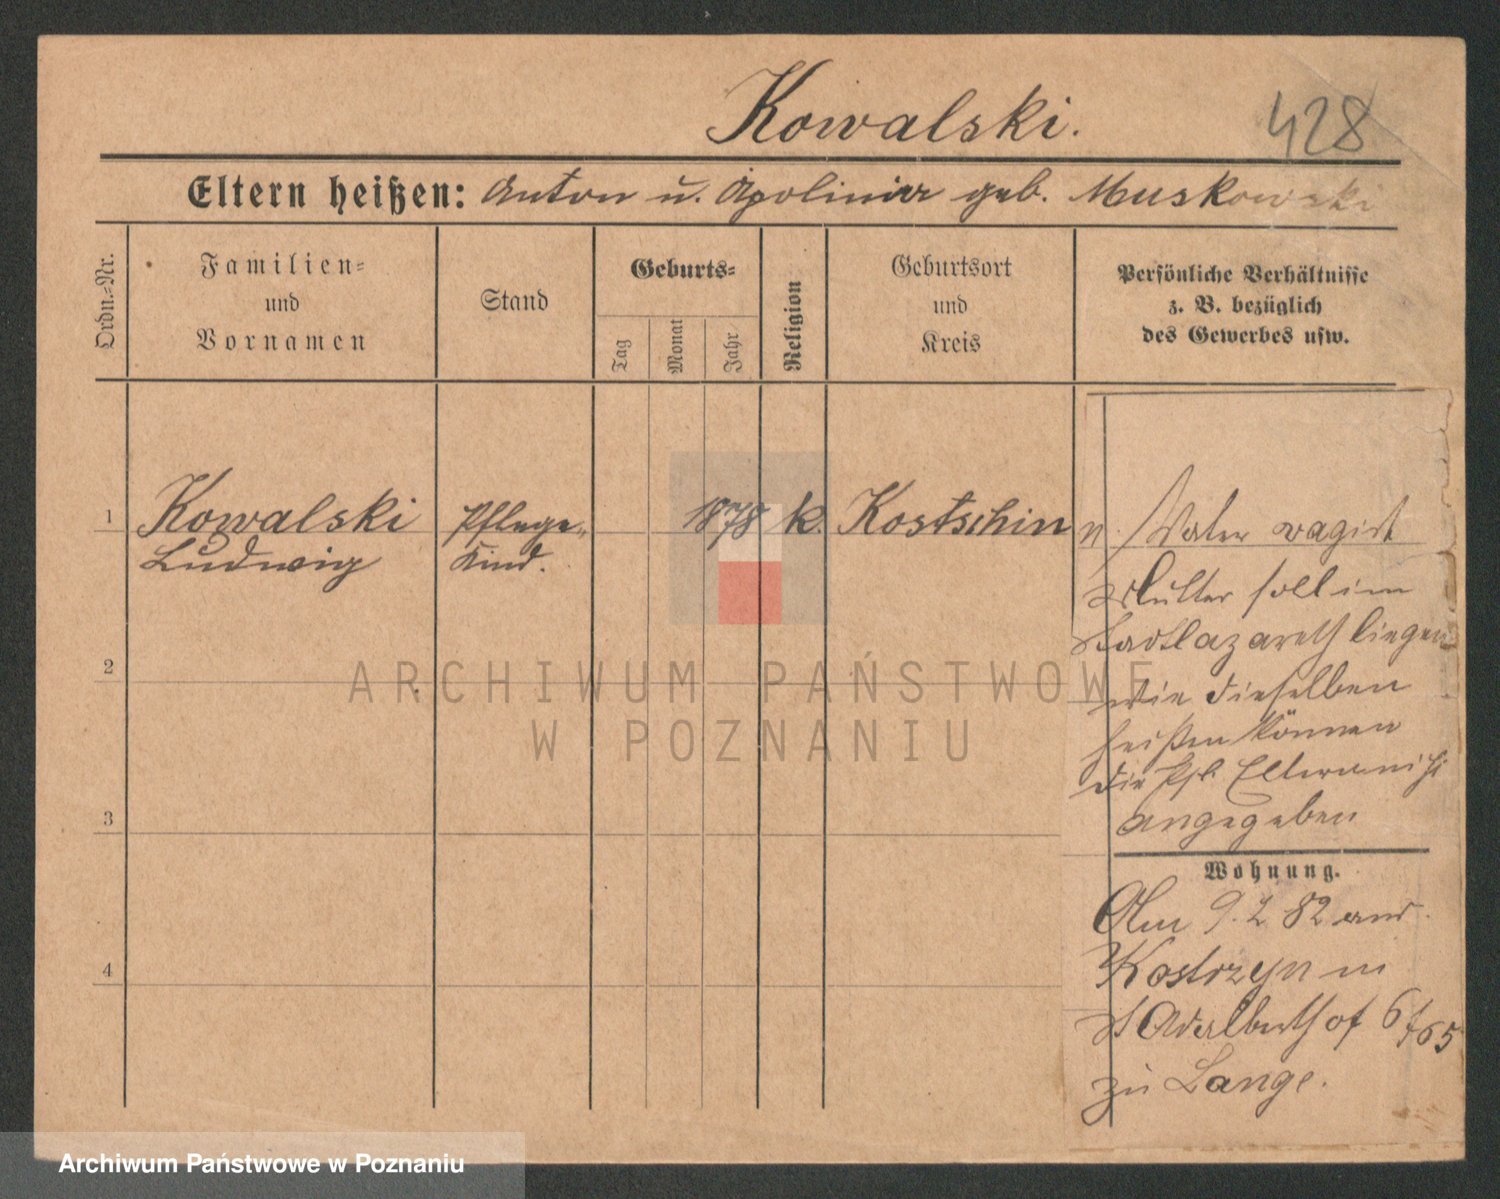 Kowalski.
428
Eltern heißen: Anton u. Apolinia geb. Muskowski
Ordn.-Nr.
Familien- und Vornamen
Stand
Geburts-
Tag
Monat
Jahr
Religion
Geburtsort und Kreis
Persönliche Verhältnisse
z. B. bezüglich
des Gewerbes usw.
1
Kowalski
Ludwig
Pflege-
Kind.
1878
k.
Kostschin
Vater vagirt
Mutter soll im
Stadtlazareth liegen
wie dieselben
heißen können
die Pfl. Eltern nicht
angegeben
Wohnung.
Am 9.2 82 aus
Kostrzyn in
St Adalberthof 6
zu Lange.
2
3
4
ARCHIWUM PAŃSTWOWE
W POZNANIU
Archiwum Państwowe w Poznaniu